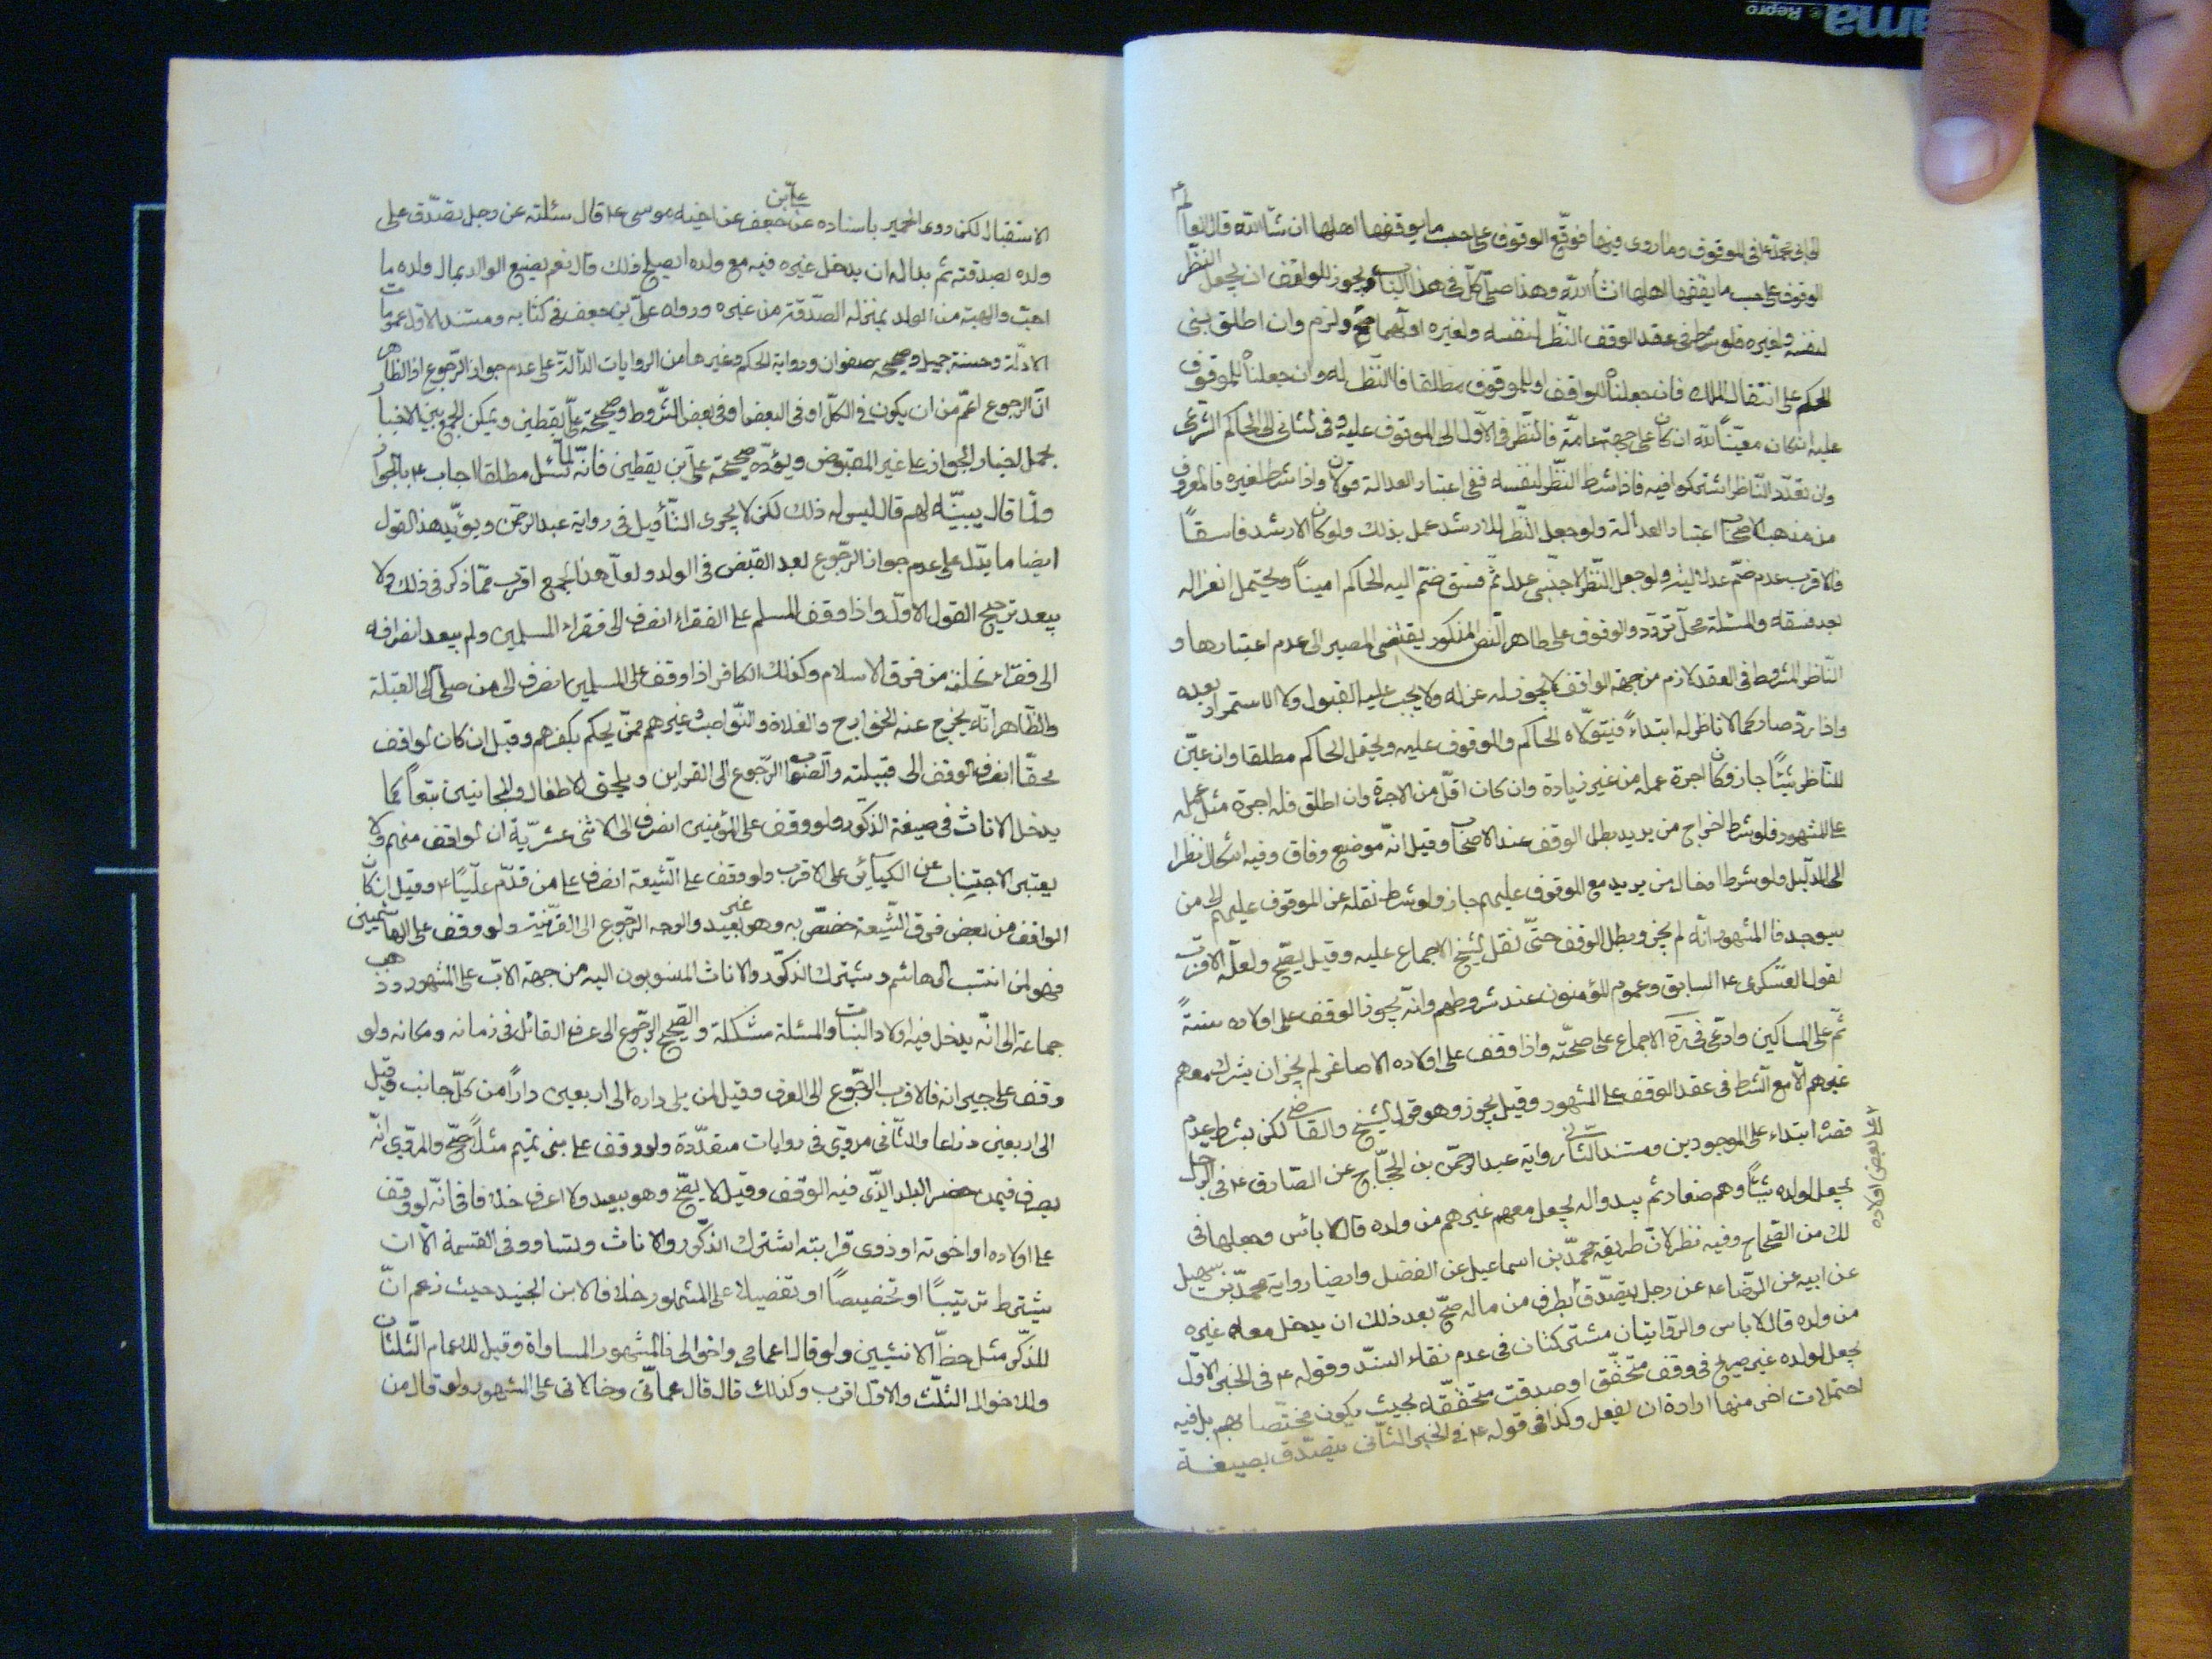 الى ابى محمد ع فى الموقوف وما روى فيها فوقع الوقوف على حسب ما يوقفها اهلها ان شاء الله قال العالم ع
الوقوف على حسب ما يقفها اهلها انشاء الله وهذا صلّى كل فى هذا الباب ويجوز للواقف ان يجعل النظر
لنفسه ولغيره فلو شرط فى عقد الوقف النظر لنفسه ولغيره او لهما صح ولزم وان اطلق بنى
الحكم على انتقال الملك فان جعلناه للواقف او للموقوف مطلقا فالنظر له وان جعلناه للموقوف
عليه ان كان معيّناً لله ان كان على جهة عامّة فالنّظر فى الاوّل الى الموقوف عليه وفى الثانى الى الحاكم الشرعى
وان تعدّد النّاظر اشتركوا فيه فاذا شرط النّظر لنفسه ففى اعتبار العدالة قولان واذا شرط لغيره فالمعروف
من مذهب الاصحاب اعتبار العدالة ولو جعل النّظر للارشد عمل بذلك ولو كان الارشد فاسقاً
فالاقرب عدم ضمّ عدل اليه ولو جعل النّظر لاجنبى عدل ثمّ فسق ضمّ اليه الحاكم اميناً ويحتمل انعزاله
بعد فسقه والمسئلة محلّ تردّد والوقوف على ظاهر النّص المذكور يقتضى المصير الى عدم اعتبارها و
النّاظر المشروط فى العقد لازم من جهة الواقف لا يجوز له عزله ولا يجب عليه القبول ولا الاستمرار بعده
واذا ردّ صار كما لا ناظر له ابتداءً فيتولّاه الحاكم والموقوف عليه ويحتمل الحاكم مطلقا وان عيّن
للنّاظر شيئاً جاز وكان اجرة عمله من غير زيادة وان كان اقلّ من الاجرة وان اطلق فله اجرة مثل عمله
على المشهور فلو شرط اخراج من يريد بطل الوقف عند الاصحاب وقيل انّه موضع وفاق وفيه اشكال نظرا
الى الدّليل ولو شرط ادخال من يريد مع الموقوف عليهم جاز ولو شرط نقله عن الموقوف عليهم الى من
سيوجد فالمشهور انّه لم يجز وبطل الوقف حتّى نقل الشيخ الاجماع عليه وقيل يصحّ ولعلّه الاقرب
لقول العسكرى ع السابق وعموم المؤمنون عند شروطهم وانّه يجوز الوقف على اولاده سنةً
ثمّ على المساكين وادّعى فى ير الاجماع على صحّته واذا وقف على اولاده الاصاغر لم يجز ان يشرك معهم
غيرهم الّا مع الشّرط فى عقد الوقف على المشهور وقيل يجوز وهو قول الشيخ والقاضى لكن بشرط عدم
قصره ابتداء على الموجودين ومستند الثّانى رواية عبد الرحمن بن الحجّاج عن الصّادق ع فى الرجل
يجعل لولده شيئاً وهم صغار ثم يبدو له يجعل معهم غيرهم من ولده قال لا بأس وجعلها فى
لك من الصّحاح وفيه نظر لانّ طريقه محمّد بن اسماعيل عن الفضل وايضا رواية محمّد بن سهل
عن ابيه عن الرّضا ع عن رجل يتصدّق بطرف من ماله صحّ بعد ذلك ان يدخل معه غيره
من ولده قال لا باس والرّوايتان مشتركتان فى عدم نقاء السّند وقوله ع فى الخبر الاوّل
يجعل لولده غير صريح فى وقف متحقّق او صدقت متحقّقة بحيث يكون مختصّا بهم بل فيه
احتمالات اخر منها ارادة ان يفعل وكذا فى قوله ع فى الخبر الثّانى يتصدّق بصيغة
على بعض اولاده
الاستقبال لكن روى الحميرى باسناده عن على بن جعفر عن اخيه موسى ع قال سئلته عن رجل تصدّق على
ولده بصدقته ثم بدا له ان يدخل غيره فيه مع ولده ايصلح ذلك قال نعم يصنع الوالد بمال ولده ما
احبّ والهبة من الولد بمنزلة الصّدقة من غيره ورواه علىّ بن جعفر فى كتابه ومستند الاوّل عمومات
الادلّة وحسنة جميل وصحيحة صفوان ورواية الحكم وغيرها من الروايات الدّالّة على عدم جواز الرّجوع اذ الظاهر
انّ الرجوع اعمّ من ان يكون فى الكلّ او فى البعض او فى بعض الشّروط وصحيحة علىّ بن يقطين ويمكن الجمع بين الاخبار
بحمل اخبار الجواز على غير المقبوض ويؤيّده صحيحة علىّ بن يقطين فانّه لمّا سئل مطلقا اجاب ع بالجواز
ولمّا قال يبيّنه لهم قال ليس له ذلك لكن لا يجرى التّأويل فى رواية عبد الرحمن ويؤيّد هذا القول
ايضا ما يدّل على عدم جواز الرّجوع بعد القبض فى الولد ولعلّ هذا الجمع اقرب ممّا ذكر فى ذلك ولا
يبعد ترجيح القول الاوّل واذا وقف المسلم على الفقراء انصرف الى فقراء المسلمين ولم يبعد انصرافه
الى فقراء نحلته من فرق الاسلام وكذلك الكافر اذا وقف على المسلمين انصرف الى من صلّى الى القبلة
والظّاهر انّه يخرج عنه الخوارج والغلاة والنّواصب وغيرهم ممّن يحكم بكفرهم وقيل ان كان الواقف
محقّا انصرف الوقف الى قبيلته والصّواب الرّجوع الى القراين ويلحق الاطفال والمجانين تبعاً كما
يدخل الاناث فى صيغة الذّكور ولو وقف على المؤمنين انصرف الى الاثنى عشريّة ان الواقف منهم ولا
يعتبر الاجتناب عن الكبائر على الاقرب ولو وقف على الشّيعة انصرف على من قدّم عليّاً ع وقيل ان كان
الواقف من بعض فرق الشّيعة خصّ به وهو غير بعيد والوجه الرّجوع الى القرينة ولو وقف على الهاشميين
فهو لمن انتسب الى هاشم ويشترك الذكور والاناث المنسوبون اليه من جهة الاب على المشهور وذهب
جماعة الى انّه يدخل فيه اولاد البنات والمسئلة مشكلة والصّحيح الرّجوع الى عرف القائل فى زمانه ومكانه ولو
وقف على جيرانه فالاقرب الرجّوع الى العرف وقيل لمن يلى داره الى اربعين داراً من كلّ جانب وقيل
الى اربعين ذراعا والثّانى مروىّ فى روايات متعدّدة ولو وقف على بنى تميم مثلاً صحّ والمروّى انّه
يصرف فيمن حضر البلد الذّى فيه الوقف وقيل لا يصّح وهو بعيد ولا اعرف خلافا فى انّه لو وقف
على اولاده او اخوته او ذوى قرابته اشترك الذّكور والاناث وتساووا فى القسمة الّا ان
يشترط ترتيباً او تخصيصاً او تفضيلا على المشهور خلافا لابن الجنيد حيث زعم انّ
للذّكر مثل حظّ الانثيين ولو قال اعمامى واخوالى فالمشهور المساواة وقيل للاعمام الثّلثان
وللاخوال الثلث والاوّل اقرب وكذلك قال قال عمّاتى وخالاتى على المشهور ولو قال من
ama
Repro